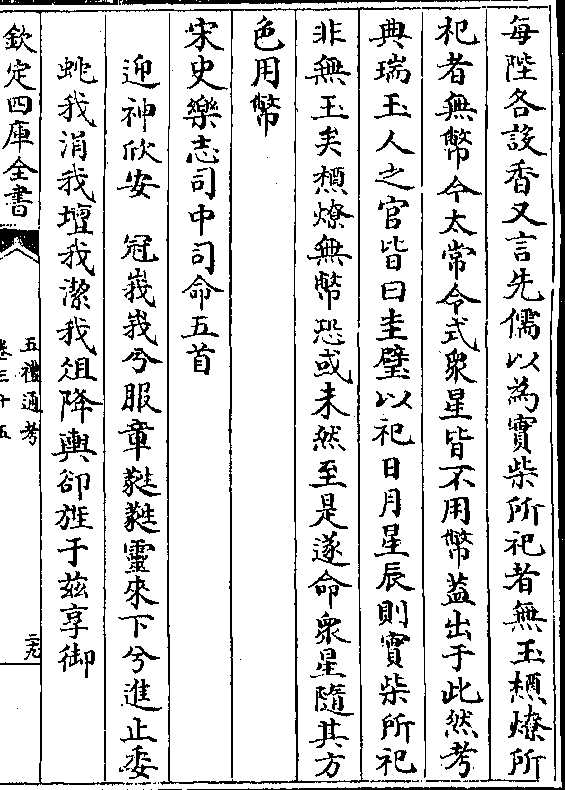 每陛各設香又言先儒以為實柴所祀者無玉槱燎所
祀者無幣今太常令式衆星皆不用幣葢出于此然考
典瑞玉人之官皆曰圭璧以祀日月星辰則實柴所祀
非無玉矣槱燎無幣恐或未然至是遂命衆星隨其方
色用幣
宋史樂志司中司命五首
迎神欣安　冠峩峩兮服章蕤蕤靈來下兮進止委
蛇我涓我壇我潔我俎降輿卻旌于兹享御
欽定四庫全書
五禮通考
卷三十五
三九